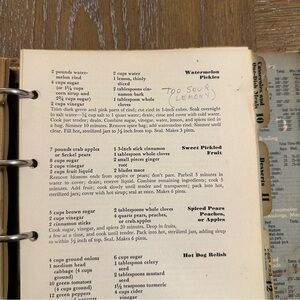 2 pounds water-
melon rind
6 cups sugar
(or 1¼ cups
corn sirup and
2¾ cups sugar)
2 cups vinegar
2 cups water
1 lemon, thinly
sliced
2 tablespoons cin-
namon bark
1 tablespoon whole
cloves
Watermelon
Pickles
TOO SOUR
(LEMON)
Trim dark green and pink parts of rind; cut rind in 1-inch cubes. Soak overnight
in salt water—¼ cup salt to 1 quart water; drain and rinse; cover with cold water.
Cook just tender; drain. Combine sugar, vinegar, water, lemon, and spice tied in
bag. Simmer 10 minutes; remove spice bag. Add rind; simmer until clear.
Fill hot, sterilized jars to ½ inch from top. Seal. Makes 3 pints.
7 pounds crab apples
or Seckel pears
8 cups sugar
2 cups vinegar
2 cups fruit liquid
1 3-inch stick cinnamon
2 tablespoons whole cloves
2 small pieces ginger
root
2 blades mace
Sweet Pickled
Fruit
Remove blossom ends from apples or pears; don't pare. Parboil 5 minutes in
water to cover; drain; reserve liquid. Combine remaining ingredients; cook 5
minutes. Add fruit; cook slowly until tender and transparent; pack into hot,
sterilized jars; cover with hot sirup; seal at once. Makes 6 pints.
5 cups brown sugar
2 cups vinegar
5 1-inch sticks
cinnamon
2 tablespoons whole cloves
4 quarts pears, peaches,
or crab apples
Spiced Pears
Peaches,
or Apples
Cook sugar, vinegar, and spices 20 minutes. Drop in fruits,
a few at a time, and cook until tender. Pack into hot, sterilized jars, adding sirup
to within ½ inch of top. Makes 6 pints.
4 cups ground onion
1 medium head
cabbage (4 cups
ground)
10 green tomatoes
(4 cups ground)
12 green peppers
6 cups sugar
1 tablespoon celery
seed
2 tablespoons mustard
seed
1½ teaspoons turmeric
4 cups cider
Hot Dog Relish
10
Desserts
11